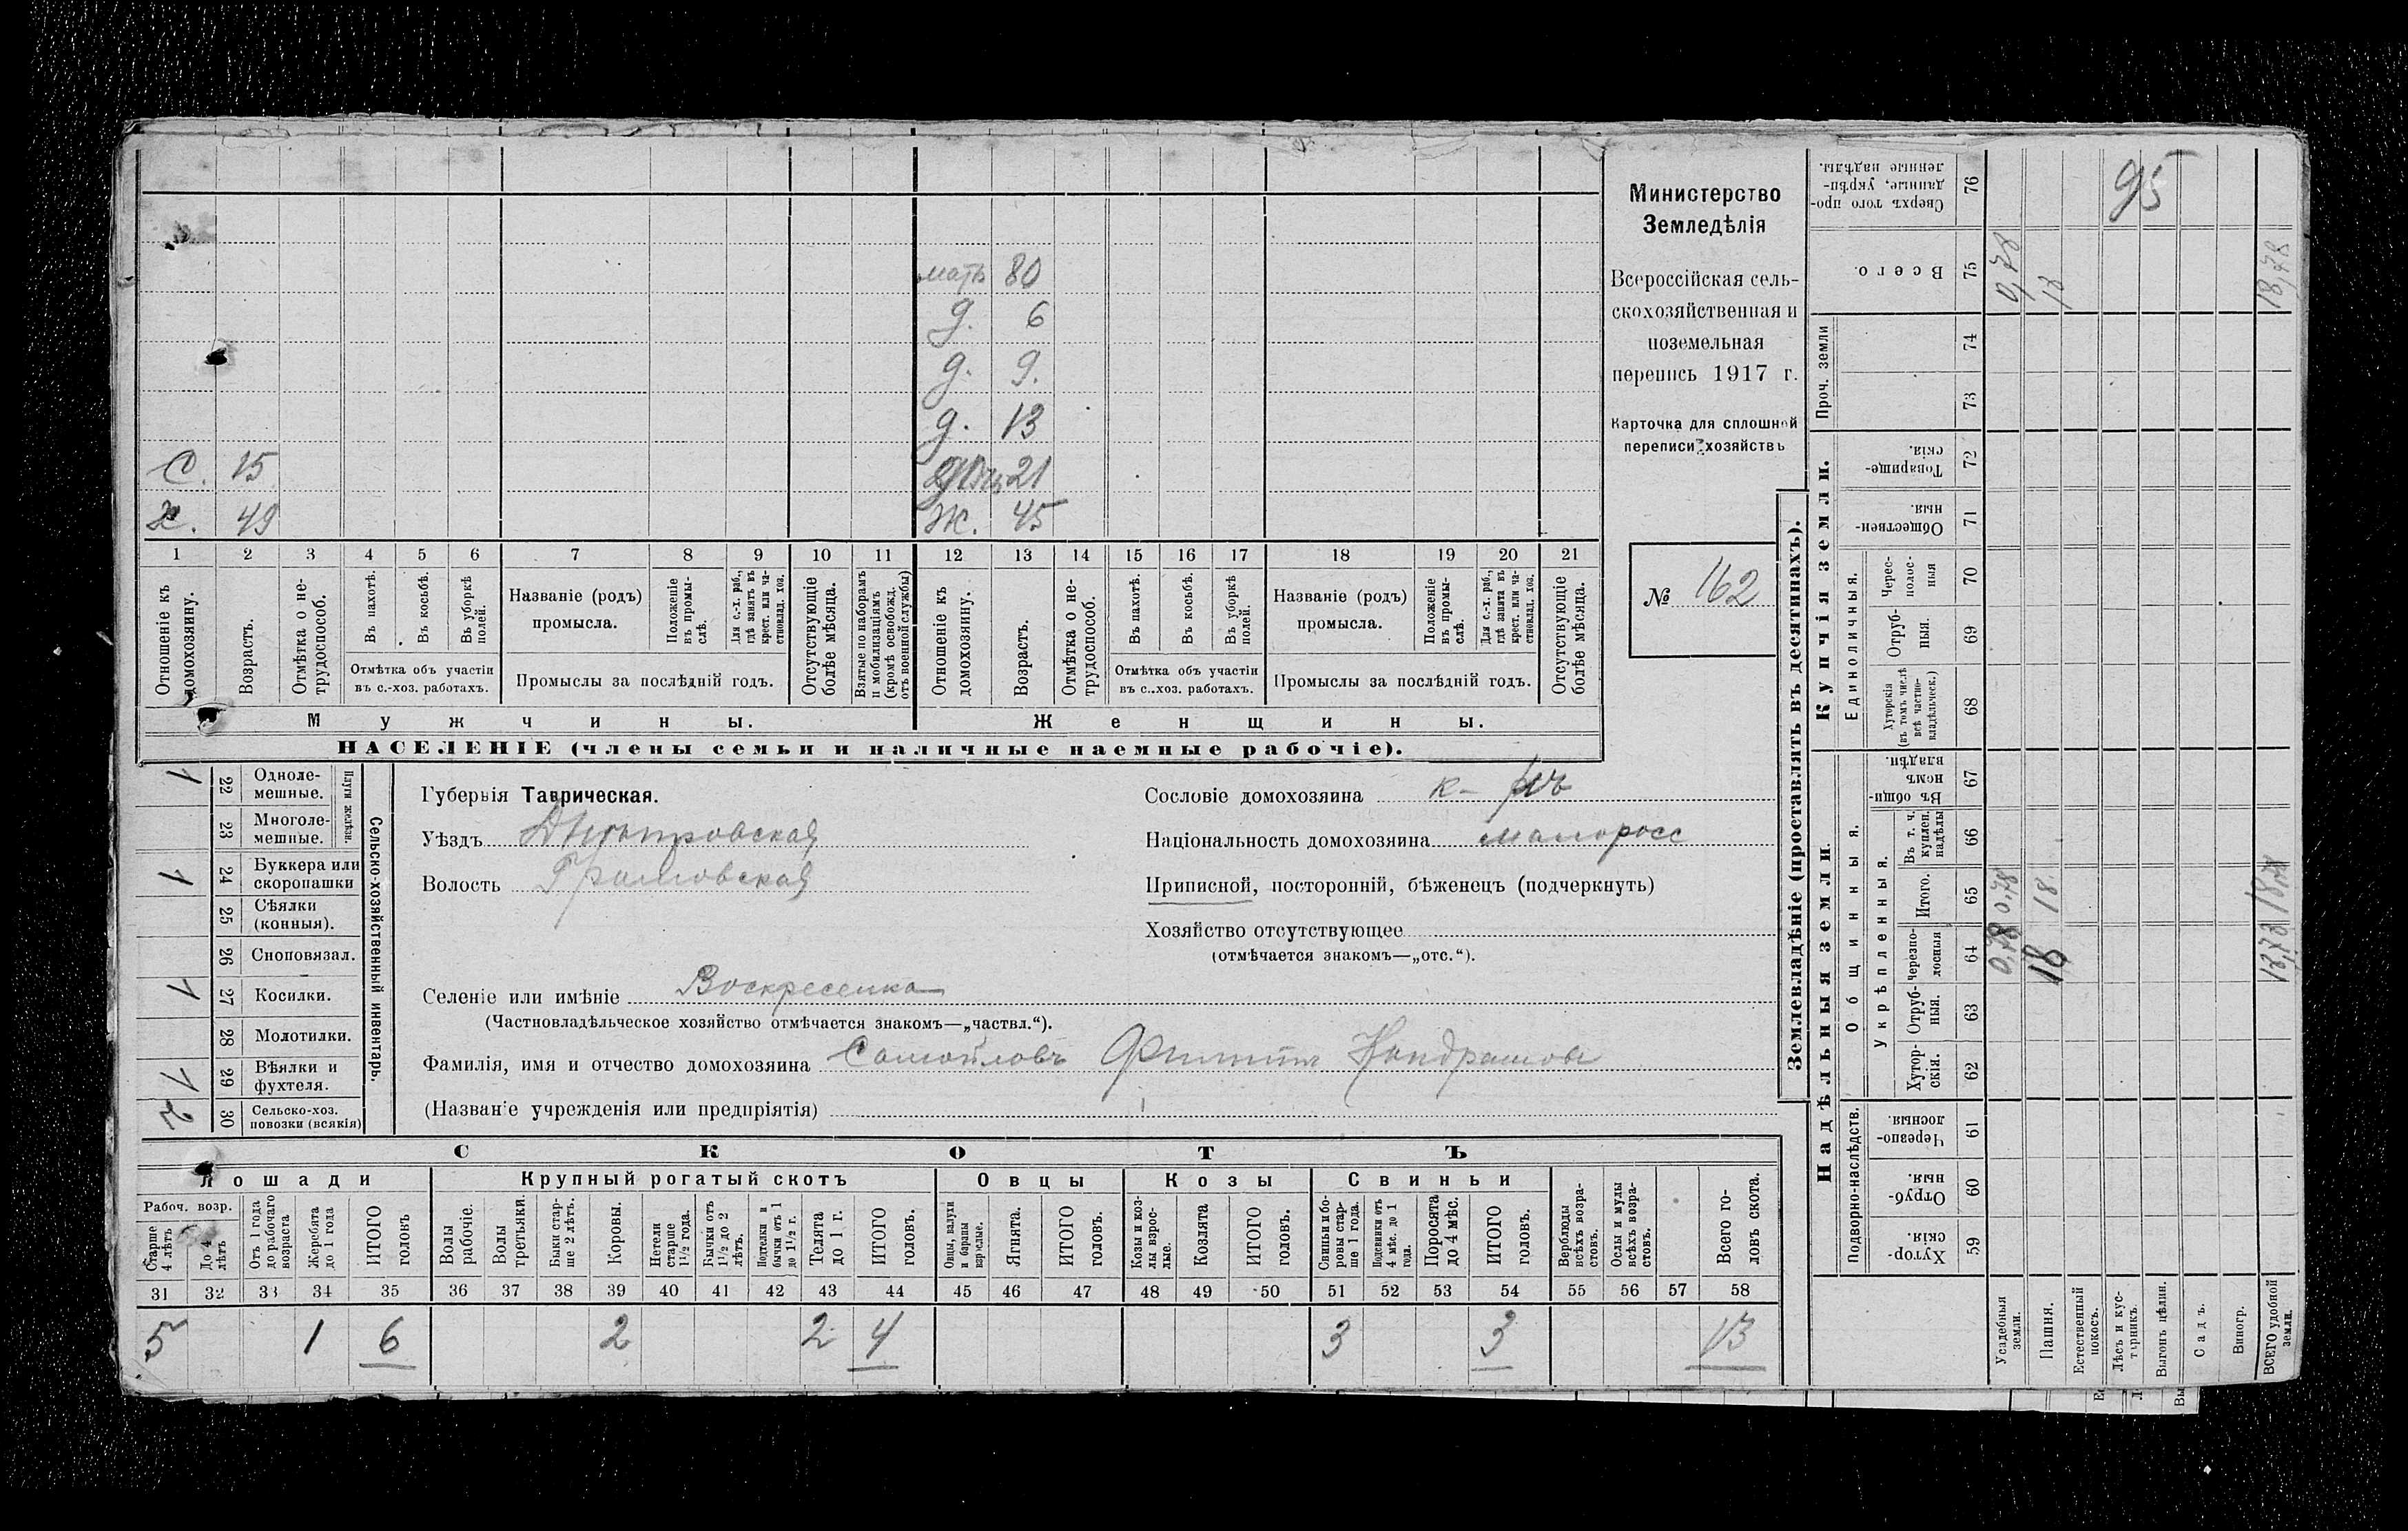 мать 80
д. 6
д. 9.
д. 13
С. 15 дочь 21
Х. 49 Ж. 45
1 2 3 4 5 6 7 8 9 10 11 12 13 14 15 16 17 18 19 20 21
Отношеніе къ домохозяину.
Возрастъ.
Отмѣтка о не-
трудоспособ.
Въ пахотѣ.
Въ косьбѣ.
Въ уборкѣ
полей.
Отмѣтка объ участіи
въ с.-хоз. работахъ.
Названіе (родъ)
промысла.
Положеніе
въ промы-
слѣ.
Для с.-х. раб.,
гдѣ занятъ въ
крест. или ча-
стновлад. хоз.
Промыслы за послѣдній годъ.
Отсутствующіе
болѣе мѣсяца.
Взятые по наборамъ
и мобилизаціямъ
(кромѣ освобожд.
отъ военной службы)
Отношеніе къ
домохозяину.
Возрастъ.
Отмѣтка о не-
трудоспособ.
Въ пахотѣ.
Въ косьбѣ.
Въ уборкѣ
полей.
Отмѣтка объ участіи
въ с.-хоз. работахъ.
Названіе (родъ)
промысла.
Положеніе
въ промы-
слѣ.
Для с.-х. раб.,
гдѣ занята въ
крест. или ча-
стновлад. хоз.
Промыслы за послѣдній годъ.
Отсутствующіе
болѣе мѣсяца.
Мужчины. Женщины.
НАСЕЛЕНІЕ (члены семьи и наличные наемные рабочіе).
Министерство
Земледѣлія
Всероссійская сель-
скохозяйственная и
поземельная
перепись 1917 г.
Карточка для сплошной
переписи хозяйствъ
№ 162
Сельско-хозяйственный инвентарь.
Плуги желѣзн.
1 22 Одноле-
мешные.
23 Многоле-
мешные.
1 24 Буккера или
скоропашки
25 Сѣялки
(конныя).
26 Сноповязал.
1 27 Косилки.
28 Молотилки.
1 29 Вѣялки и
фухтеля.
2 30 Сельско-хоз.
повозки (всякія)
Губернія Таврическая.
Уѣздъ Днѣпровская
Волость Громовская
Селеніе или имѣніе Воскресенка
(Частновладѣльческое хозяйство отмѣчается знакомъ—„частвл.“).
Фамилія, имя и отчество домохозяина Самойловъ Филиппъ Кондратовъ
(Названіе учрежденія или предпріятія)
Сословіе домохозяина к-
Національность домохозяина малоросс
Приписной, посторонній, бѣженецъ (подчеркнуть)
Хозяйство отсутствующее
(отмѣчается знакомъ—„отс.“).
СКОТЪ
Лошади Крупный рогатый скотъ Овцы Козы Свиньи
Рабоч. возр.
Старше
4 лѣтъ
До 4
лѣтъ
Отъ 1 года
до рабочаго
возраста
Жеребята
до 1 года
ИТОГО
головъ
Волы
рабочіе.
Волы
третьяки.
Быки стар-
ше 2 лѣтъ.
Коровы.
Нетели
старше
1½ года.
Бычки отъ
1½ до 2
лѣтъ.
Подтелки и
бычки отъ 1
до 1½ г.
Телята
до 1 г.
ИТОГО
головъ.
Овцы, валухи
и бараны
взрослые.
Ягнята.
ИТОГО
головъ.
Козы и коз-
лы взрос-
лые.
Козлята
ИТОГО
головъ.
Свиньи и бо-
ровы стар-
ше 1 года.
Подсвинки отъ
4 мѣс. до 1
года.
Поросята
до 4 мѣс.
ИТОГО
головъ.
Верблюды
всѣхъ возра-
стовъ.
Ослы и мулы
всѣхъ возра-
стовъ.
Всего го-
ловъ скота.
31 32 33 34 35 36 37 38 39 40 41 42 43 44 45 46 47 48 49 50 51 52 53 54 55 56 57 58
5 1 6 2 2 4 3 3 13
Землевладѣніе (проставлять въ десятинахъ).
Сверхъ того про-
данные, укрѣп-
ленные надѣлы.
76
95
Всего.
75
0,78
18
18,78
Проч. земли
74
73
Купчія земли.
Товарище-
скія.
72
Обществен-
ныя.
71
Единоличныя.
Черес-
полос-
ныя
70
Отруб-
ныя.
69
Хуторскія
(въ томъ числѣ
всѣ частно-
владѣльческ.)
68
Надѣльныя земли.
Общинныя.
Въ общи-
номъ
владѣн.
67
Укрѣпленныя.
Въ т. ч.
куплен.
надѣлы
66
Итого.
65
0,78
18.
18,78
Черезпо-
лосныя
64
0,78
18
18,78
Отруб-
ныя.
63
Хутор-
скія.
62
Подворно-наслѣдств.
Черезпо-
лосныя.
61
Отруб-
ныя.
60
Хутор-
скія.
59
Усадебныя
земли.
Пашня.
Естественный
покосъ.
Лѣсъ и кус-
тарникъ.
Выгонъ цѣлин.
Садъ.
Виногр.
ВСЕГО удобной
земли.